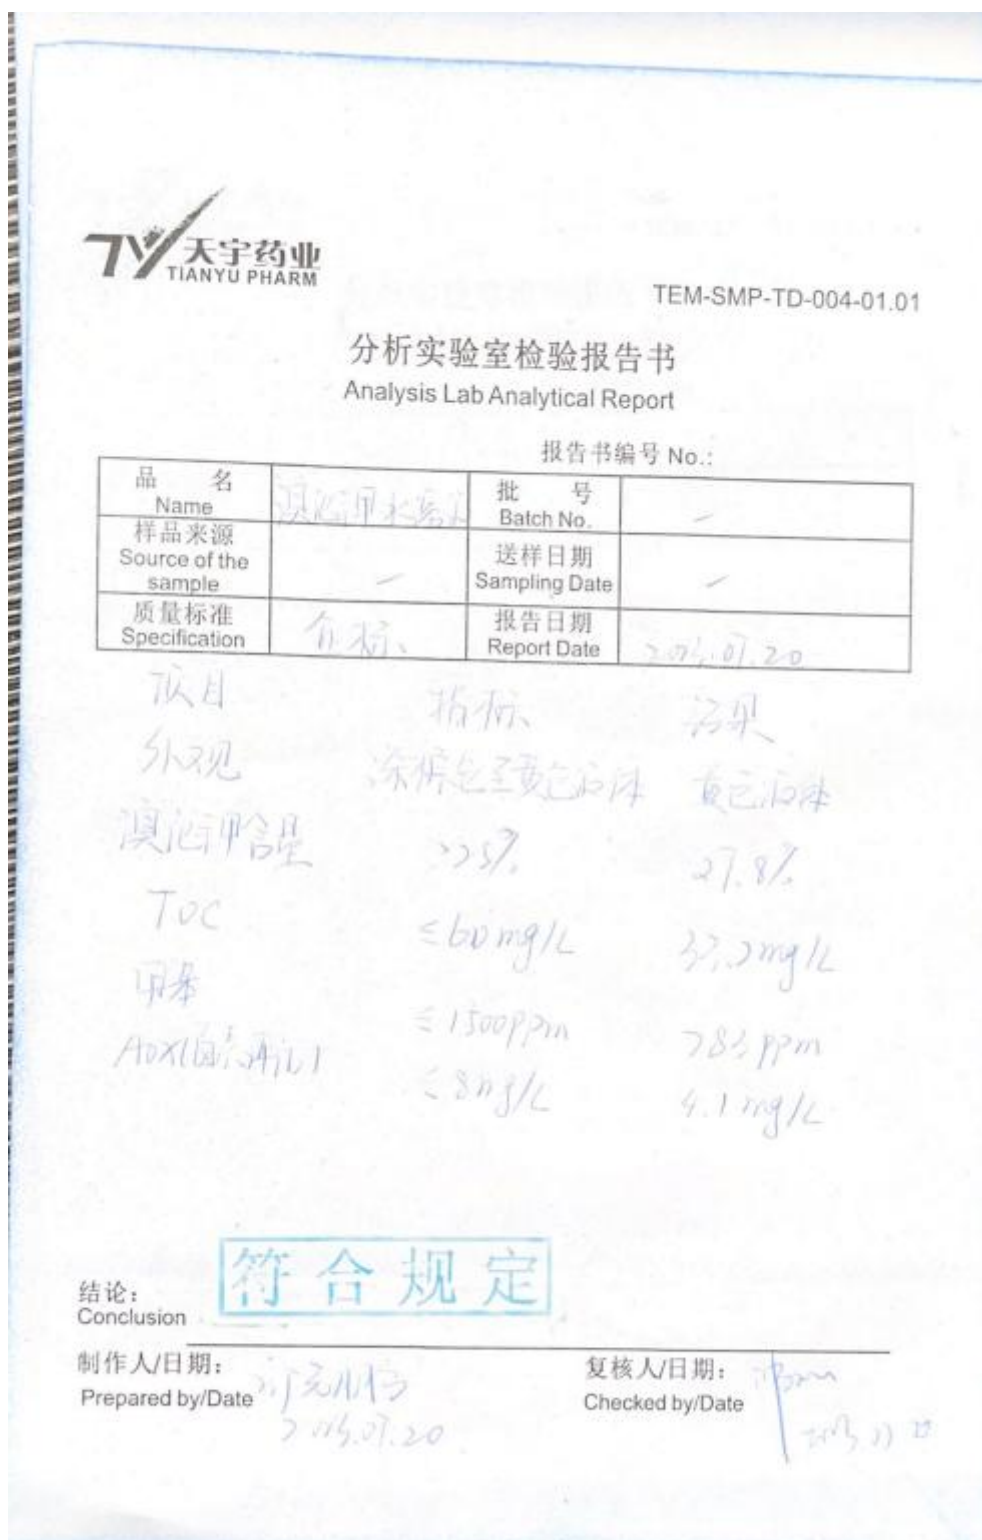 天宇药业
TIANYU PHARM
TEM-SMP-TD-004-01.01
分析实验室检验报告书
Analysis Lab Analytical Report
报告书编号 No.:
品 名
Name
溴化钾水溶液
批 号
Batch No.
-
样品来源
Source of the
sample
-
送样日期
Sampling Date
-
质量标准
Specification
企标、
报告日期
Report Date
项目 指标、 结果
外观 浅棕色至黄色液体 黄色液体
溴化钾含量 >25% 27.8%
TOC ≤60mg/L mg/L
甲苯 ≤1500ppm 783ppm
AOX ≤8mg/L 4.1mg/L
结论:
Conclusion
符合规定
制作人/日期:
Prepared by/Date
复核人/日期:
Checked by/Date